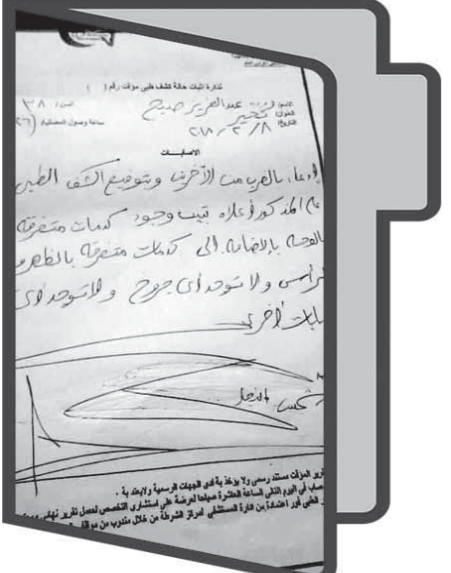 تذكرة اثبات حالة كشف طبى موقت رقم ( )
عبدالعزيز صبيح السن / ٣٨
ساعة وصول المصاب
الاصابات
إدعاء بالضرب من الآخرين وبتوقيع الكشف الطبى
المذكور أعلاه تبين وجود كدمات متفرقة
بالوجه بالإضافة إلى كدمات متفرقة بالظهر و
الرأس ولا توجد أى جروح ولا توجد أى
أخرى
المؤقت مستند رسمى ولا يؤخذ به لدى الجهات الرسمية ولا يعتد به .
فى اليوم التالى الساعة العاشرة صباحا لعرضة على استشارى التخصص لعمل تقرير نهائى
الطبى فور اعتمادة من ادارة المستشفى لمركز الشرطة من خلال مندوب من